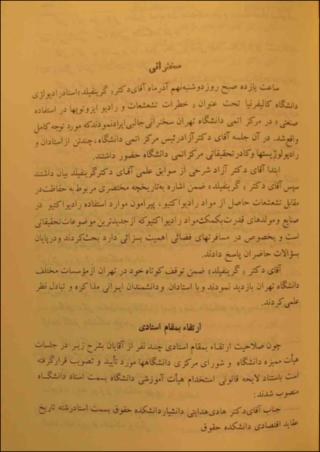 سخنرانی
ساعت یازده صبح روز دوشنبه نهم آذرماه آقای دکتر «گرینفیلد» استاد رادیولوژی
دانشگاه کالیفرنیا تحت عنوان «خطرات تشعشعات و رادیو ایزوتوپها در استفاده
صنعتی» در مرکز اتمی دانشگاه تهران سخنرانی جالبی ایراد نمودند که مورد توجه کامل
واقع شد. در آن جلسه آقای دکتر آزاد رئیس مرکز اتمی دانشگاه، چند تن از استادان و
رادیولوژیستها و کادر تحقیقاتی مرکز اتمی دانشگاه حضور داشتند.
ابتدا آقای دکتر آزاد شرحی از سوابق علمی آقای دکتر گرینفیلد بیان داشتند
سپس آقای دکتر «گرینفیلد» ضمن اشاره به تاریخچه مختصری مربوط به حفاظت در
مقابل تشعشعات حاصل از مواد رادیو اکتیو، پیرامون موارد استفاده رادیو اکتیو در
صنایع و مولدهای قدرت بکمک مواد رادیو اکتیو که از جدیدترین موضوعات تحقیقاتی
است و بخصوص در مسافرتهای فضائی اهمیت بسزائی دارد بحث کردند و در پایان
بسؤالات حاضران پاسخ دادند.
آقای دکتر «گرینفیلد» ضمن توقف کوتاه خود در تهران از مؤسسات مختلف
دانشگاه تهران بازدید نمودند و با استادان و دانشمندان ایرانی مذاکره و تبادل نظر
علمی کردند.
ارتقاء بمقام استادی
چون صلاحیت ارتقاء بمقام استادی چند نفر از آقایان بشرح زیر در جلسات
هیأت ممیزه دانشگاه و شورای مرکزی دانشگاهها مورد تأیید و تصویب قرار گرفته
است باستناد لایحه قانونی استخدام هیأت آموزشی دانشگاه بسمت استاد دانشگاه
منصوب شدند:
جناب آقای دکتر هادی هدایتی دانشیار دانشکده حقوق بسمت استاد رشته تاریخ
عقاید اقتصادی دانشکده حقوق